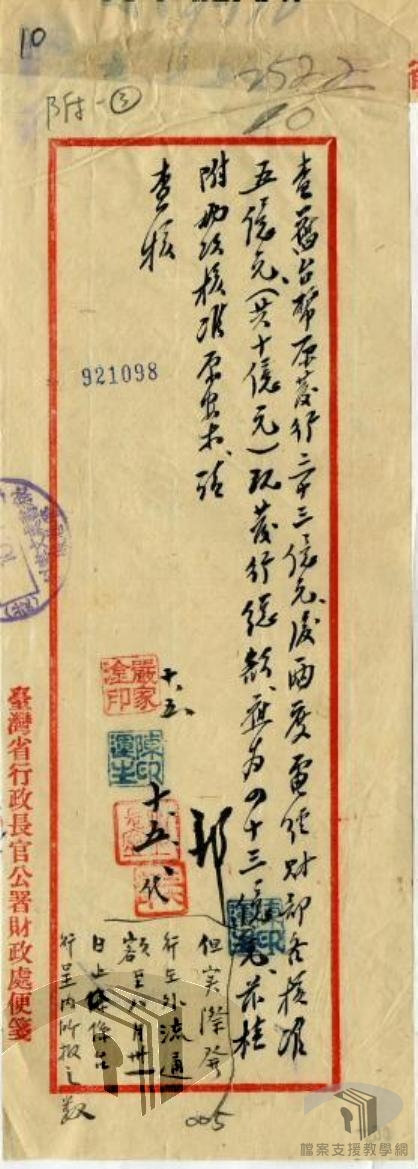 10
2522
10
附一③
查舊台幣原發行三十三億元後兩度電經財部各核准
五億元(共十億元)現發行總額應為四十三億元茲檢
附兩次核准原案未請
查核
921098
十、五、
嚴家淦印
十、五、代
但實際發
行在外流通
額至八月卅一
日止係台
行呈內所報之數
臺灣省行政長官公署財政處便箋
005
檔案支援教學網